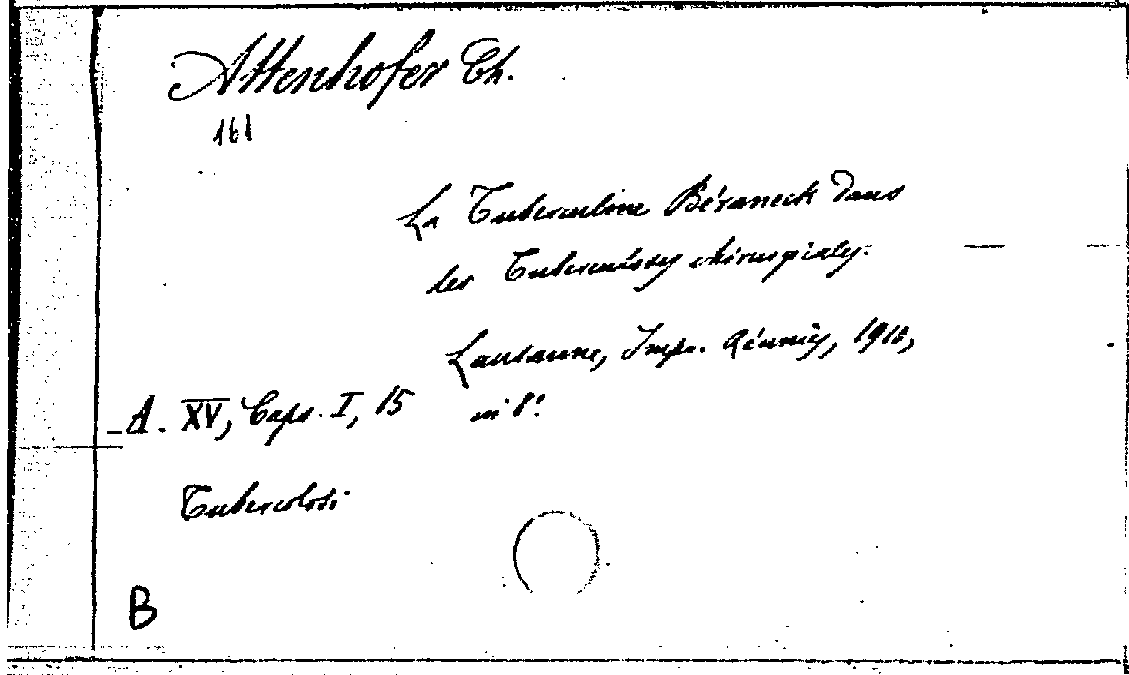 Attenhofer Ch.
161
La Tuberculine Béraneck dans
les Tuberculoses chirurgicales.
Lausanne, Impr. Réunies, 1910,
in 8°.
A. XV, Caps. I, 15
Tubercolosi
B